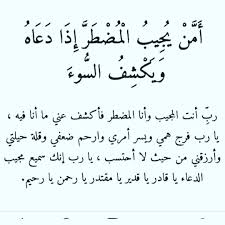 أَمَّنْ يُجِيبُ الْمُضْطَرَّ إِذَا دَعَاهُ
وَيَكْشِفُ السُّوءَ
ربِّ أنت المجيب وأنا المضطر فأكشف عني ما أنا فيه ،
يا رب فرج همي ويسر أمري وارحم ضعفي وقلة حيلتي
وأرزقني من حيث لا أحتسب ، يا رب إنك سميع مجيب
الدعاء يا قادر يا قدير يا مقتدر يا رحمن يا رحيم.